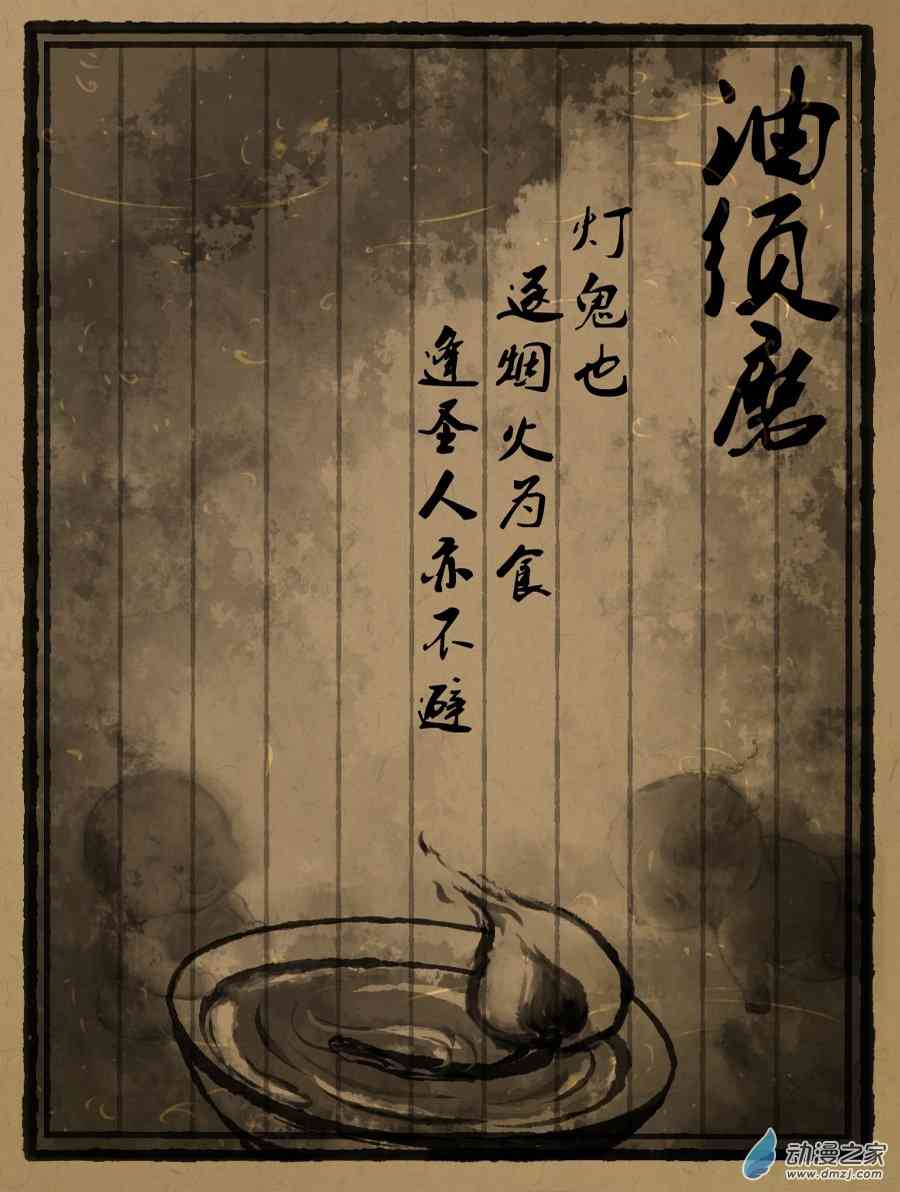 油须磨
灯鬼也
逐烟火为食
逢圣人亦不避
动漫之家
www.dmzj.com